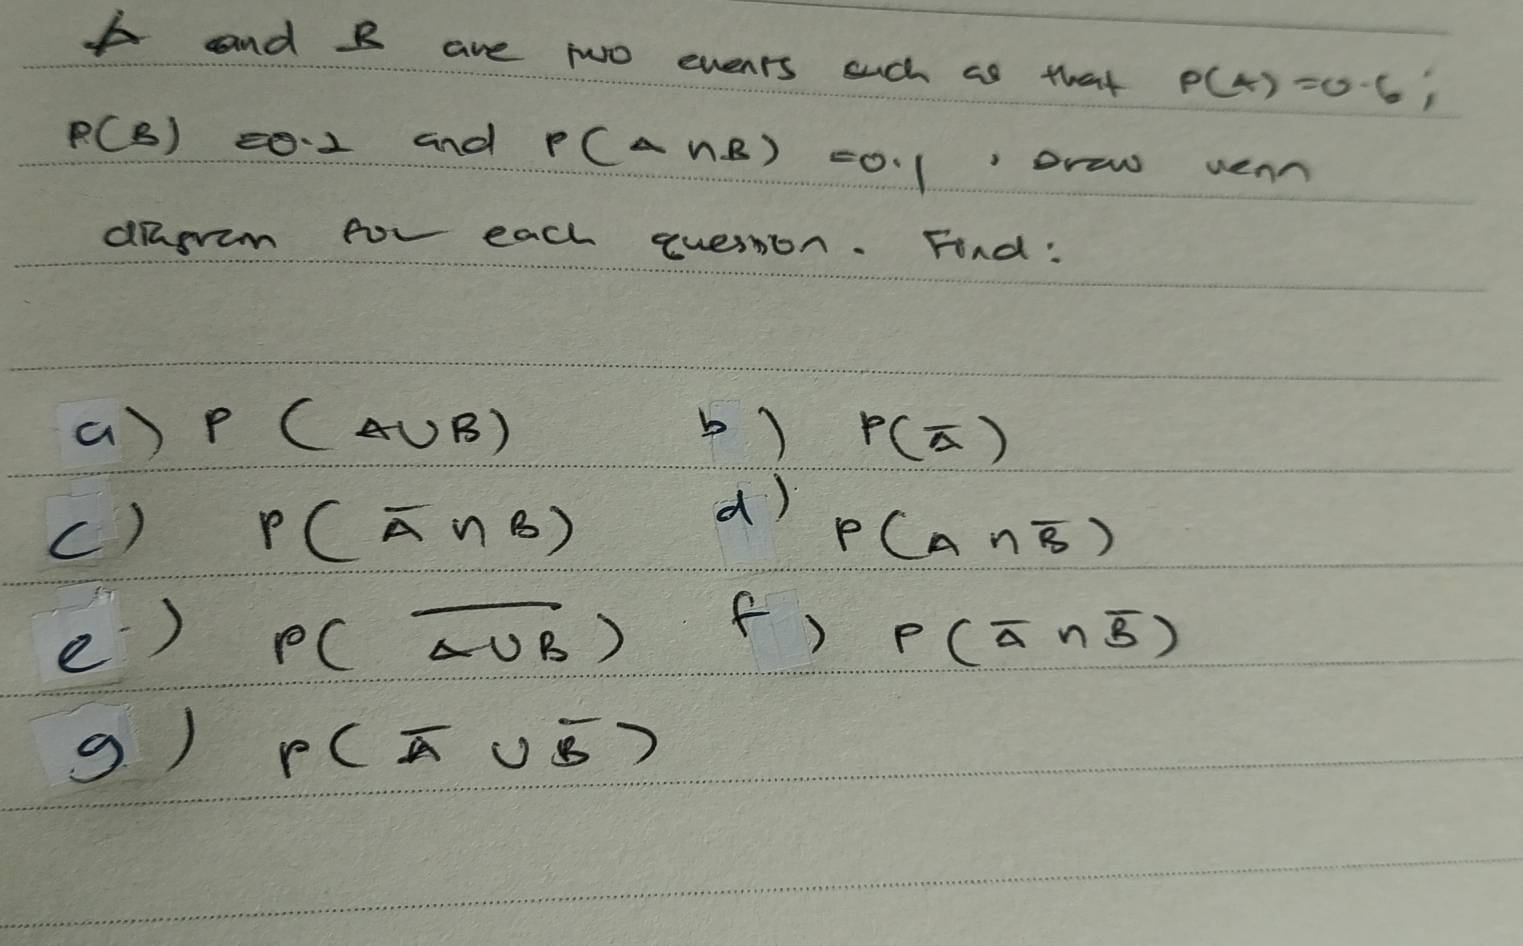 A and B are two events such as that P(A) = 0.6;
P(B) = 0.2 and P(A ∩ B) = 0.1, Draw venn
diagram for each question. Find:
a) P (A∪B) b) P(A̅)
c) P(A̅ ∩ B) d) P(A ∩ B̅)
e) P(A̅∪̅B̅) f) P(A̅ ∩ B̅)
g) P(A̅ ∪ B̅)